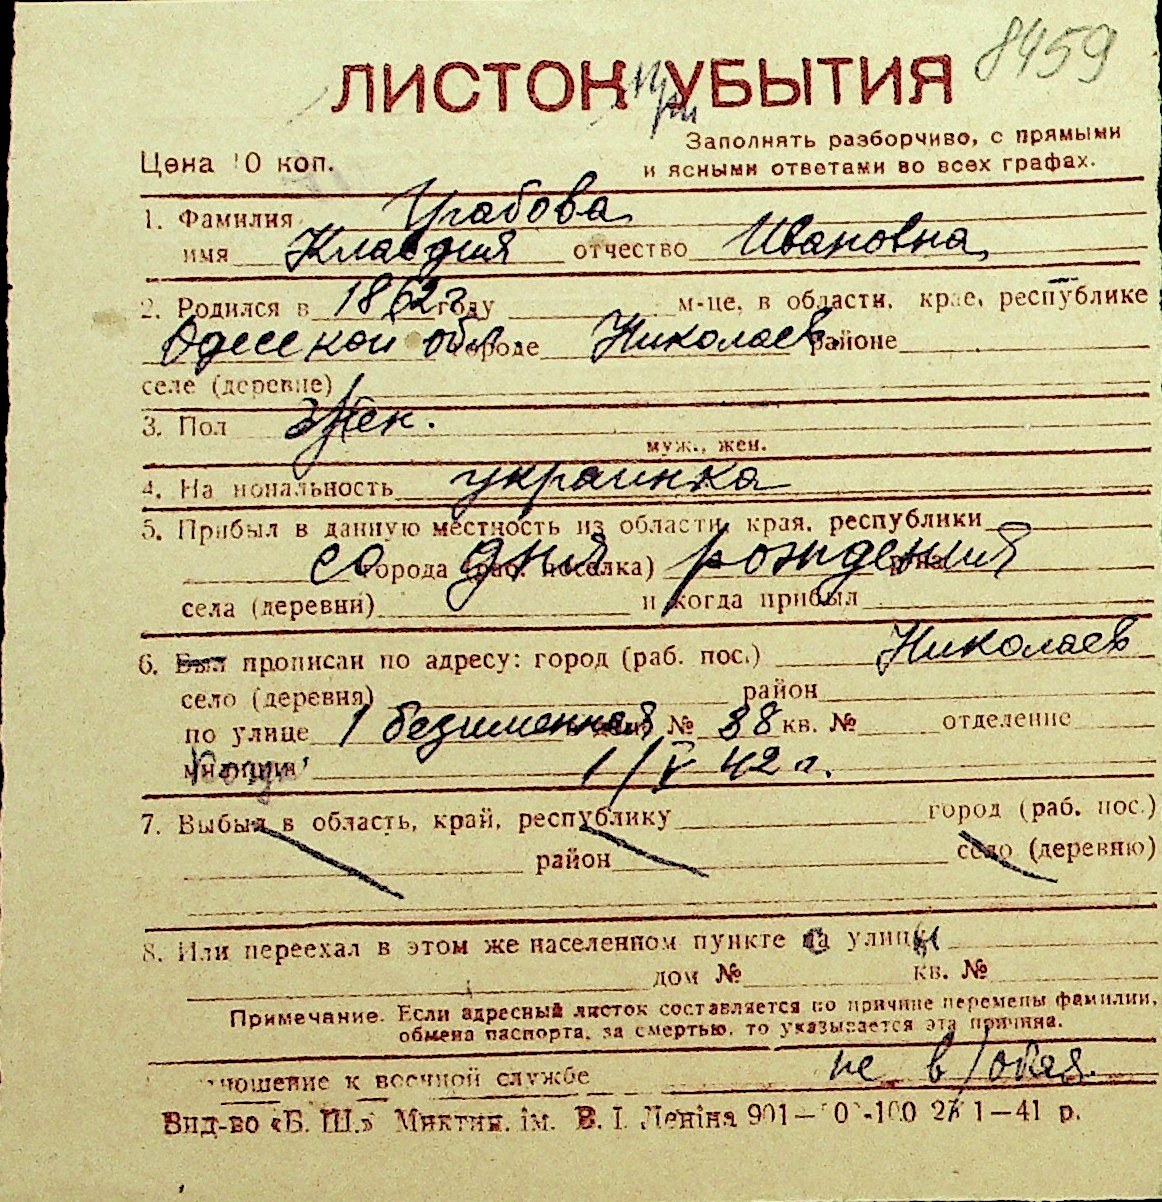 8459
ЛИСТОК УБЫТИЯ
Цена 10 коп.
Заполнять разборчиво, с прямыми
и ясными ответами во всех графах.
1. Фамилия Грабова
имя Клавдия отчество Ивановна
2. Родился в 1862 г. году м-це, в области, крае, республике
Одесской обл. городе Николаев районе
селе (деревне)
3. Пол Жен.
муж., жен.
4. На иональность украинка
5. Прибыл в данную местность из области, края, республики
со дня рождения
города (раб. поселка) р-на
села (деревни) и когда прибыл
6. Был прописан по адресу: город (раб. пос.) Николаев
село (деревня) район
по улице 1 безименная дом № 38 кв. № отделение
милиции 1/V 42 г.
7. Выбыл в область, край, республику город (раб. пос.)
район село (деревню)
8. Или переехал в этом же населенном пункте на улицу
дом № кв. №
Примечание. Если адресный листок составляется по причине перемены фамилии,
обмена паспорта, за смертью, то указывается эта причина.
ношение к военной службе не в/обяз.
Вид-во «Б. Ш.» Миктип. ім. В. І. Леніна 901— 0 -100 2 1—41 р.